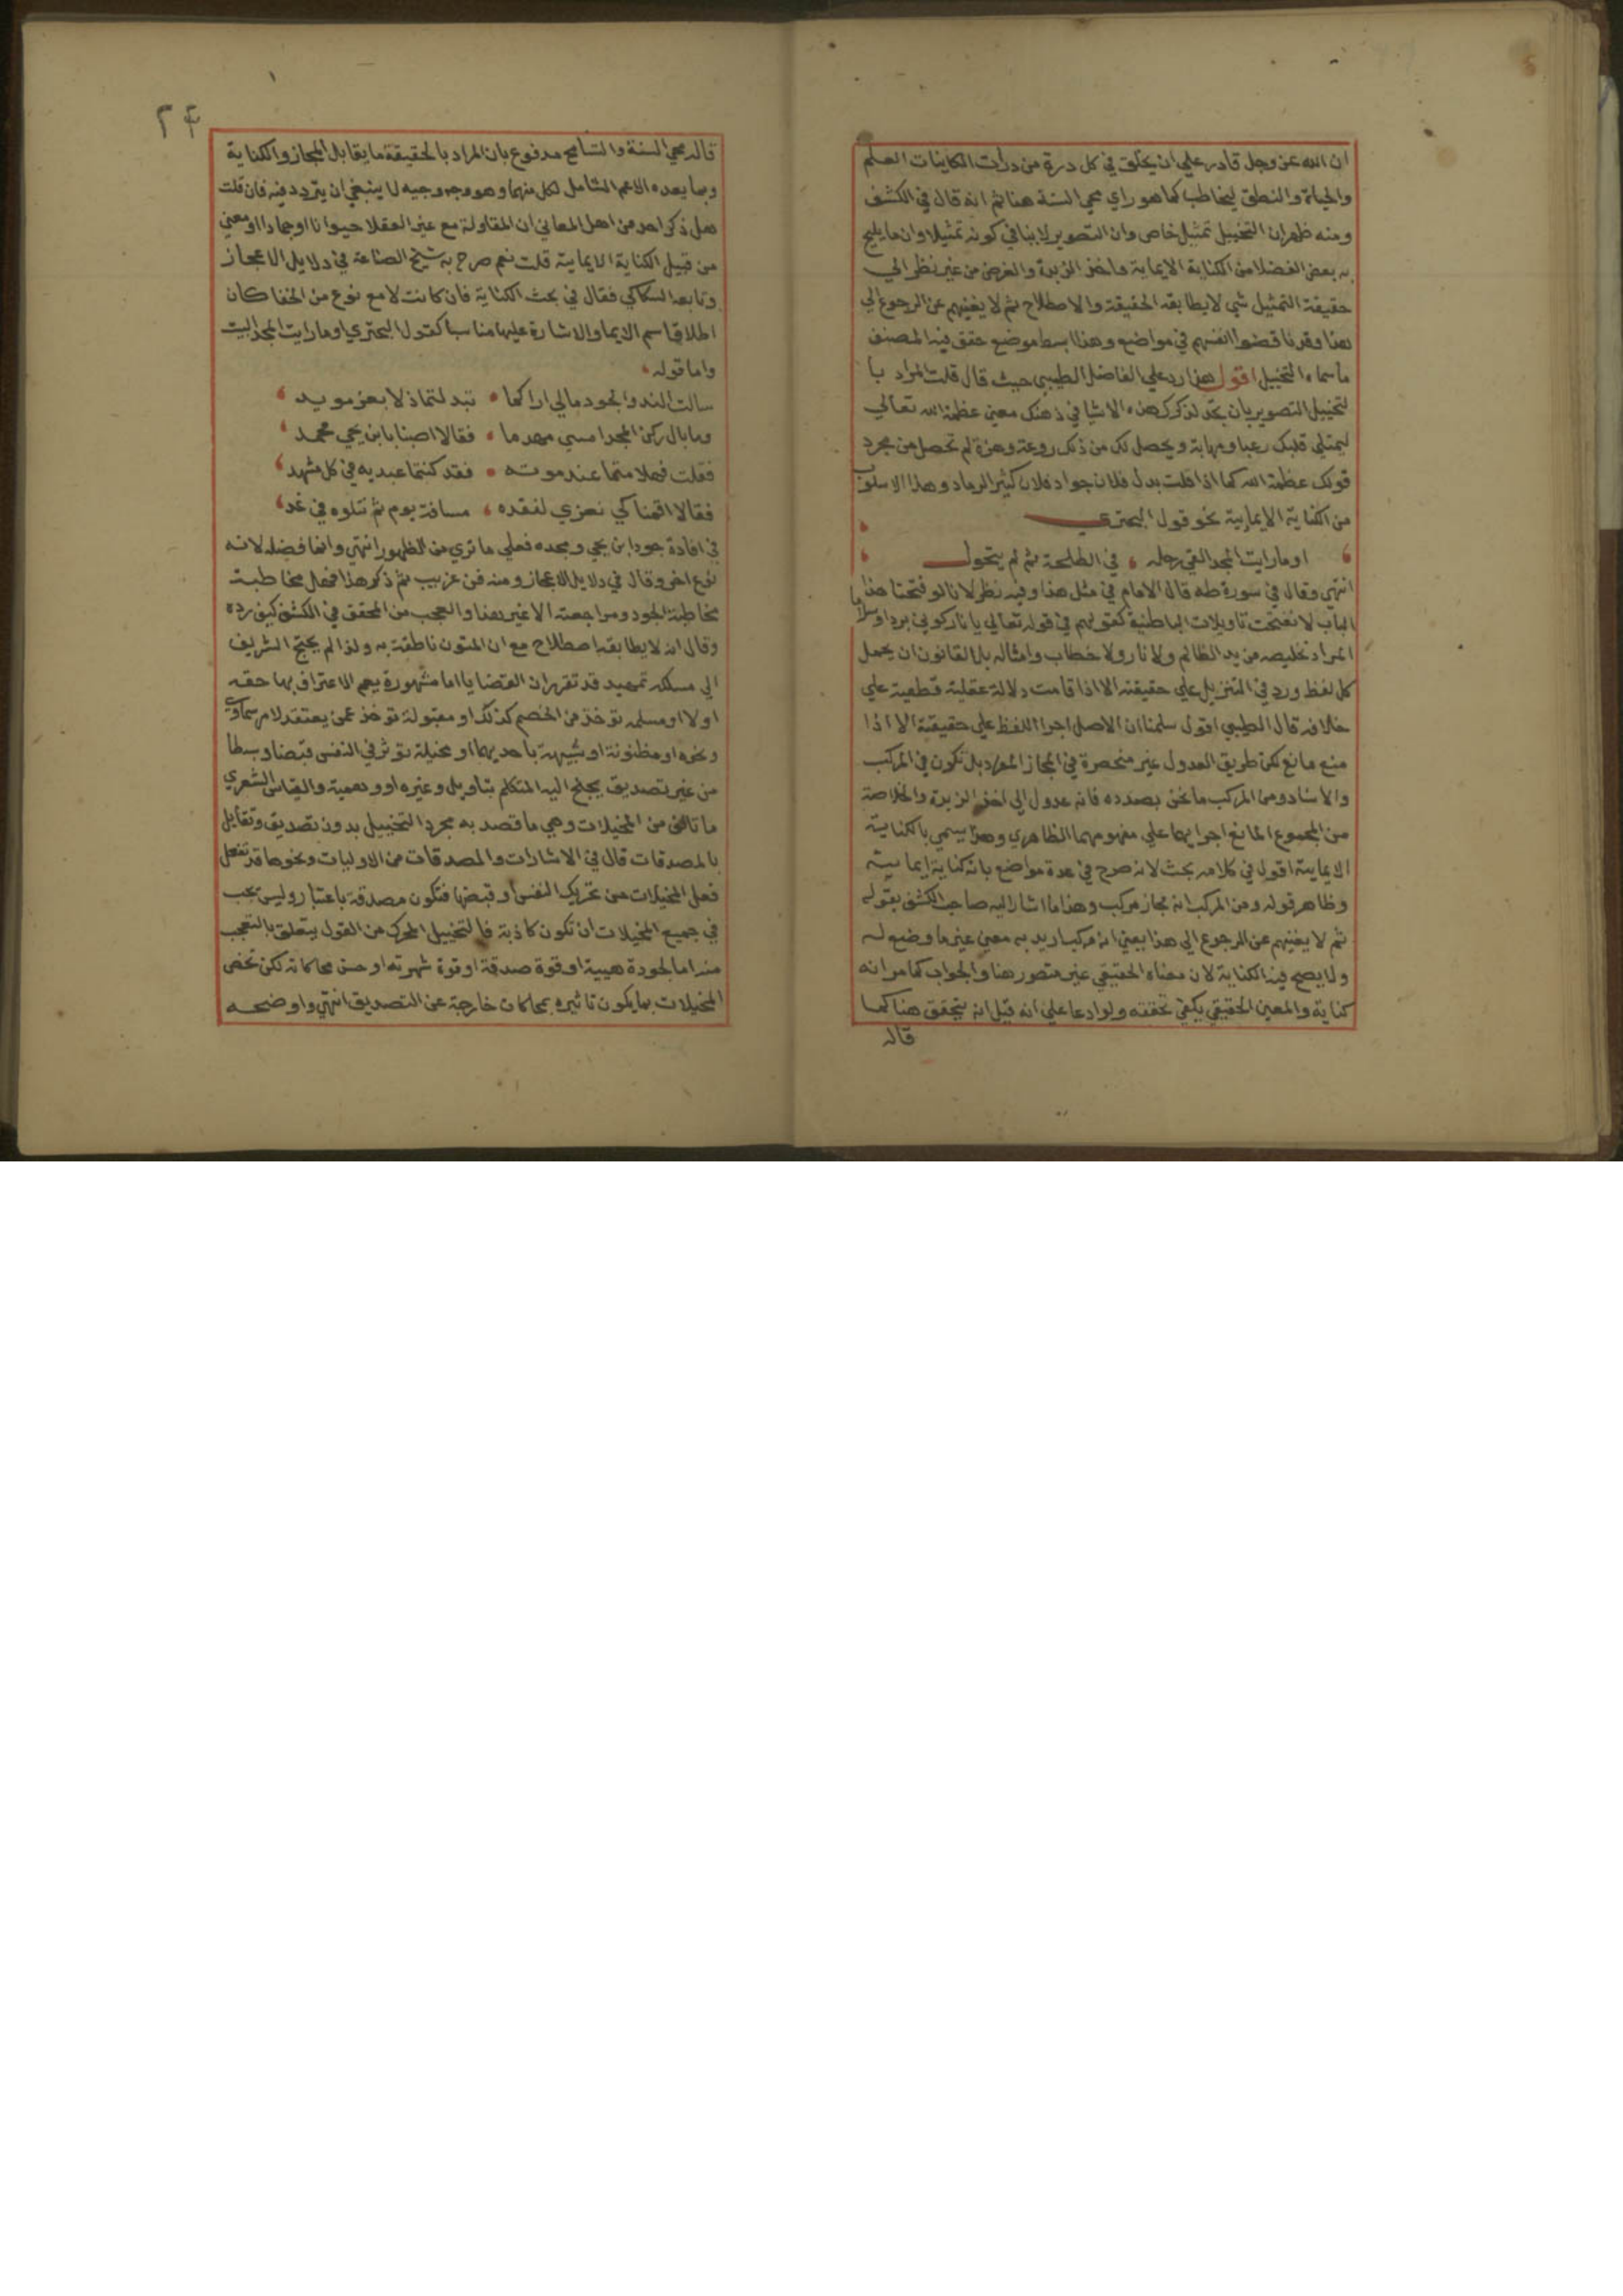 ان الله عز وجل قادر علي ان يخلق في كل درة من درات الكاينات العلم
والحياة والنطق ليخاطب كما هو راي محي السنة هنا ثم انه قال في الكشف
ومنه ظهر ان التخييل تمثيل خاص وان التصوير لا ينافي كونه تمثيلا وان ما يلهج
به بعض الفضلا من الكناية الايمايية واخذ الزبدة والغرض من غير نظر الي
حقيقة التمثيل شي لا يطابقه الحقيقة والاصطلاح ثم لا يغنيهم عن الرجوع الي
هذا وقد ناقضوا انفسهم في مواضع وهذا ابسط موضع حقق فيه المصنف
ما سماه التخييل اقول هذا رد علي الفاضل الطيبي حيث قال قلت المراد با
لتخييل التصوير بان تخيل لذكرك هذه الاشيا في ذهنك معني عظمة الله تعالي
ليمتلي قلبك رعبا ومهابة ويحصل لك من ذلك روعة وهزة لم تحصل من مجرد
قولك عظمة الله كما اذا قلت بدل فلان جواد فلان كثير الرماد وهذا الاسلوب
من الكناية الايمايية نحو قول البحتري
او ما رايت المجد القي رحله في ال طلحة ثم لم يتحول
انتهي وقال في سورة طه قال الامام في مثل هذا وفيه نظر لانا لو فتحنا هذا
الباب لانفتحت تاويلات الباطنية كقولهم في قوله تعالي يا نار كوني بردا وسلاما
المراد تخليصه من يد الظالم ولا نار ولا خطاب وامثاله بل القانون ان يحمل
كل لفظ ورد في التنزيل علي حقيقته الا اذا قامت دلالة عقلية قطعية علي
خلافه قال الطيبي اقول سلمنا ان الاصل اجرا اللفظ علي حقيقته الا اذا
منع مانع لكن طريق العدول غير منحصرة في المجاز المفرد بل تكون في المركب
والاسناد ومن المركب ما نحن بصدده فانه عدول الي اخذ الزبدة والخلاصة
من المجموع المانع اجراءها علي مفهومهما الظاهري وهذا يسمي بالكناية
الايمايية اقول في كلامه بحث لانه صرح في عدة مواضع بانه كناية ايمايية
وظاهر قوله ومن المركب انه مجاز مركب وهذا ما اشار اليه صاحب الكشف بقوله
ثم لا يغنيهم عن الرجوع الي هذا يعني انه مركب اريد به معني غير ما وضع له
ولا يصح فيه الكناية لان معناه الحقيقي غير متصور هنا والجواب كما مر انه
كناية والمعني الحقيقي يكفي تحققه ولو ادعا علي انه قيل انه يتحقق هنا كما
قاله
٢٤
قاله محي السنة والتسامح مدفوع بان المراد بالحقيقة ما يقابل المجاز والكناية
وبما بعده الاعم الشامل لكل منهما وهو وجه وجيه لا ينبغي ان يتردد فيه فان قلت
هل ذكر احد من اهل المعاني ان المقاولة مع غير العقلا حيوانا او جمادا او معني
من قبيل الكناية الايمايية قلت نعم صرح به شيخ الصناعة في دلايل الاعجاز
وتابعه السكاكي فقال في بحث الكناية فان كانت لا مع نوع من الخفا كان
اطلاق اسم الايما والاشارة عليها مناسبا كقول البحتري او ما رايت المجد البيت
واما قوله
سالت الندا والجود مالي اراكما تبدلتما ذلا بعز مويد
وما بال ركن المجد امسي مهدما فقالا اصبنا بابن يحي محمد
فقلت فهلا متما عند موته فقد كنتما عبديه في كل مشهد
فقالا اقمنا كي نعزي لفقده مسافة يوم ثم نتلوه في غد
في افادة جود ابن يحي ومجده فعلي ما تري من الظهور انتهي وانما فضله لانه
نوع اخر وقال في دلايل الاعجاز ومنه فن غريب ثم ذكر هذا فجعل مخاطبة
مخاطبة الجود ومراجعته الا غير هذا والعجب من المحقق في الكشف كيف رده
وقال انه لا يطابقه اصطلاح مع ان المتون ناطقة به ولذا لم يحتج الشريف
الي مسلكه تمهيد قد تقرر ان القضايا اما مشهورة يعم الاعتراف بها حقه
او لا او مسلمه توخذ من الخصم كذلك او مقبولة توخذ عمن يعتقد لامر سماوي
ونحوه او مظنونة او شبيهة باحديهما او مخيلة توثر في النفس قبضا وبسطا
من غير تصديق يجلح اليه المتكلم بتاويل وغيره او وهمية والقياس الشعري
ما تالف من المخيلات وهي ما قصد به مجرد التخييل بدون تصديق وتقابل
بالمصدقات قال في الاشارات والمصدقات من الاوليات ونحوها قد تفعل
فعل المخيلات من تحريك النفس او قبضها فتكون مصدقة باعتبار وليس يجب
في جميع المخيلات ان تكون كاذبة فالتخييل المحرك من القول يتعلق بالتعجب
منه اما لجودة هيية او قوة صدقه او قوة شهرته او حسن محاكاته لكن تخص
المخيلات بما يكون تاثيره بمحاكات خارجة عن التصديق انتهي واوضحه